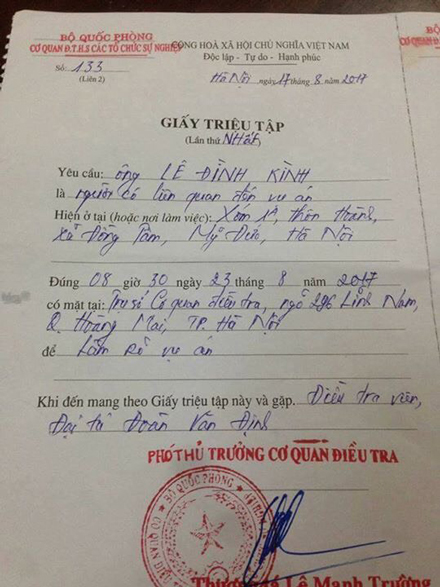 BỘ QUỐC PHÒNG
CƠ QUAN Đ.T.H.S CÁC TỔ CHỨC SỰ NGHIỆP
Số: 133
(Liên 2)
CỘNG HOÀ XÃ HỘI CHỦ NGHĨA VIỆT NAM
Độc lập - Tự do - Hạnh phúc
Hà Nội ngày 17 tháng 8 năm 2017
GIẤY TRIỆU TẬP
(Lần thứ Nhất)
Yêu cầu: ông LÊ ĐÌNH KÌNH
là người có liên quan đến vụ án
Hiện ở tại (hoặc nơi làm việc): Xóm, thôn Hoành,
xã Đồng Tâm, Mỹ Đức, Hà Nội
Đúng 08 giờ 30 ngày 23 tháng 8 năm 2017
có mặt tại: Trụ sở Cơ quan điều tra, ngõ 296 Lĩnh Nam,
Q. Hoàng Mai, TP. Hà Nội
để Làm rõ vụ án
Khi đến mang theo Giấy triệu tập này và gặp. Điều tra viên,
Đại tá Đoàn Văn Định
PHÓ THỦ TRƯỞNG CƠ QUAN ĐIỀU TRA
BỘ QUỐC PHÒNG
Thượng tá Lê Mạnh Trường